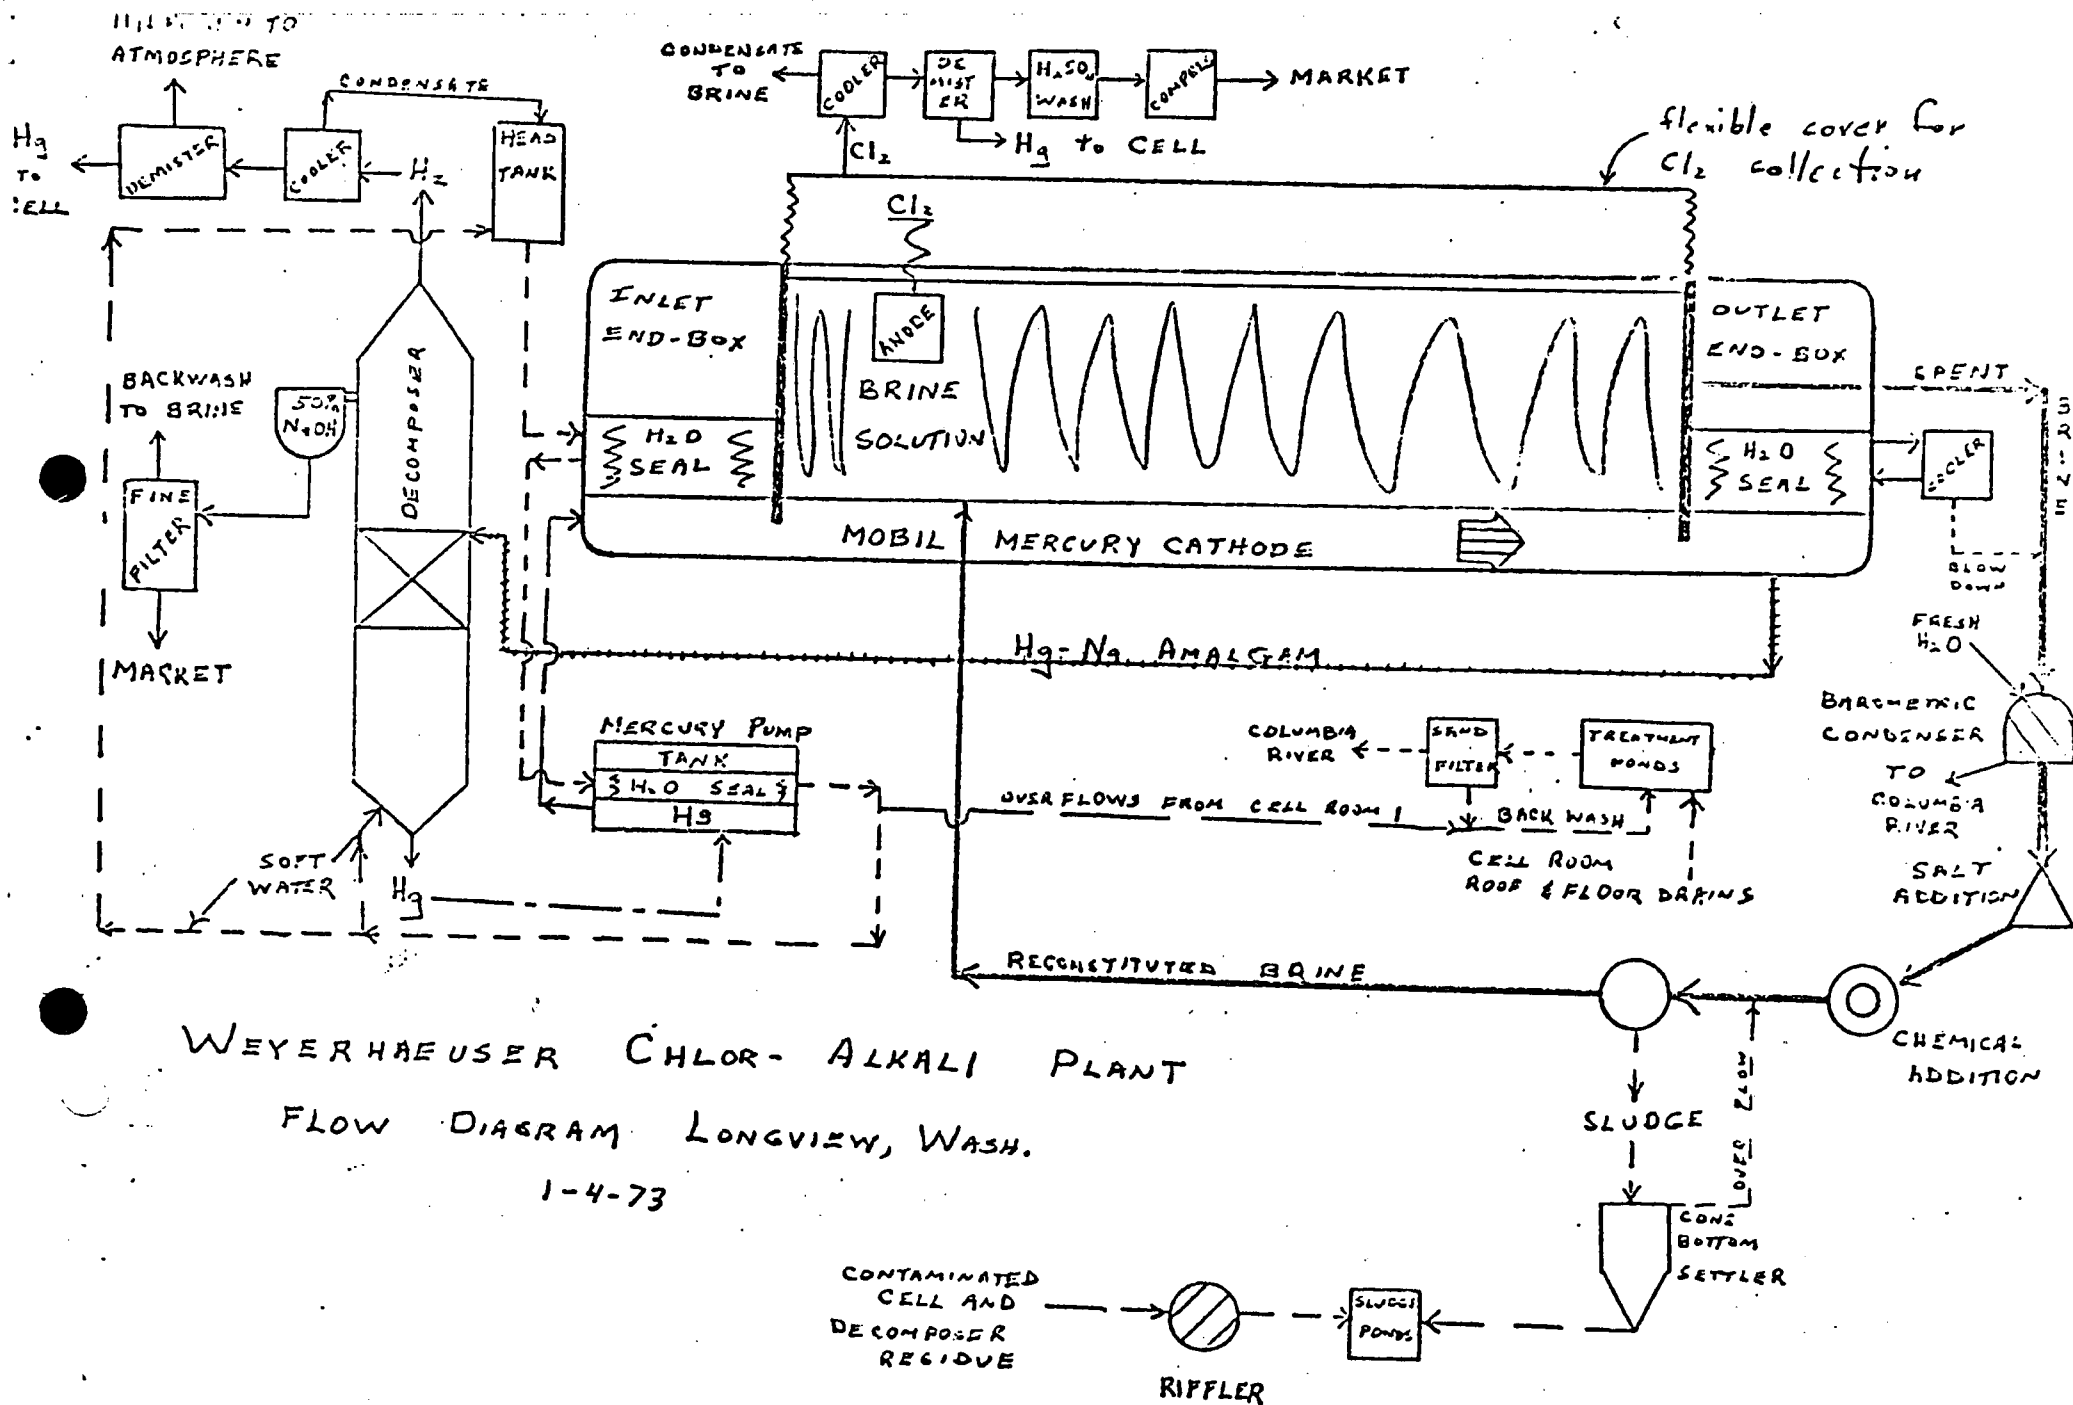 TO
ATMOSPHERE
CONDENSATE
Hg
TO
DEMISTER
COOLER
H2
HEAD
TANK
CONDENSATE
TO
BRINE
COOLER
DE
MIST
ER
H2SO4
WASH
MARKET
Cl2
Hg to CELL
flexible cover for
Cl2 collection
Cl2
INLET
END-BOX
ANODE
BRINE
SOLUTION
H2O
SEAL
OUTLET
END-BOX
H2O
SEAL
SPENT
BRINE
BLOW
DOWN
MOBIL MERCURY CATHODE
BACKWASH
TO BRINE
50%
NaOH
DECOMPOSER
FINE
FILTER
MARKET
Hg-Na AMALGAM
FRESH
H2O
BAROMETRIC
CONDENSER
TO
COLUMBIA
RIVER
MERCURY PUMP
TANK
H2O SEAL
Hg
COLUMBIA
RIVER
SAND
FILTER
TREATMENT
PONDS
OVERFLOWS FROM CELL ROOM
BACK WASH
CELL ROOM
ROOF & FLOOR DRAINS
SOFT
WATER
Hg
SALT
ADDITION
RECONSTITUTED BRINE
CHEMICAL
ADDITION
OVERFLOW
SLUDGE
CONE
BOTTOM
SETTLER
WEYERHAEUSER CHLOR-ALKALI PLANT
FLOW DIAGRAM LONGVIEW, WASH.
1-4-73
CONTAMINATED
CELL AND
DECOMPOSER
RESIDUE
RIFFLER
SLUDGE
PONDS